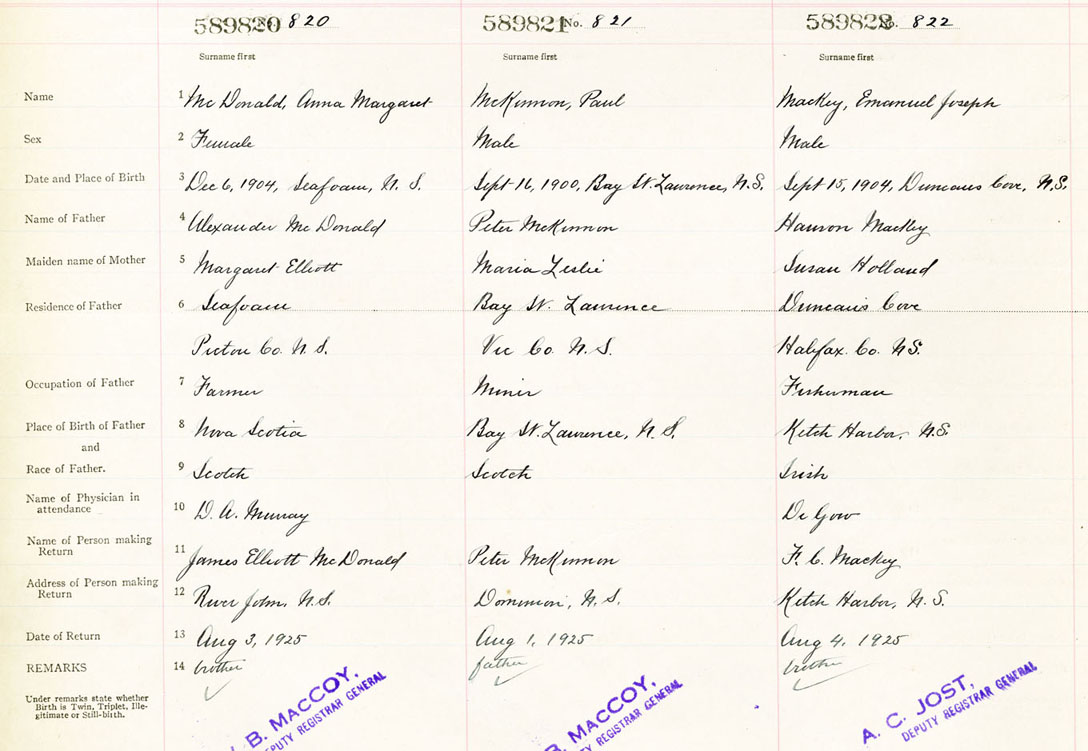 589820 No. 820 589821 No. 821 589822 No. 822
Surname first Surname first Surname first
Name 1 McDonald, Anna Margaret McKinnon, Paul Mackey, Emanuel Joseph
Sex 2 Female Male Male
Date and Place of Birth 3 Dec 6, 1904, Seafoam, N. S. Sept 16, 1900, Bay St. Lawrence, N.S. Sept 15, 1904, Duncans Cove, N.S.
Name of Father 4 Alexander McDonald Peter McKinnon Mackey
Maiden name of Mother 5 Margaret Elliott Maria Leslie Susan Holland
Residence of Father 6 Seafoam Bay St. Lawrence Duncan's Cove
Pictou Co. N. S. Vic Co. N. S. Halifax Co. N.S.
Occupation of Father 7 Farmer Miner Fisherman
Place of Birth of Father 8 Nova Scotia Bay St. Lawrence, N. S. Ketch Harbor, N.S.
and
Race of Father. 9 Scotch Scotch Irish
Name of Physician in
attendance 10 D. A. Murray Dr Gow
Name of Person making
Return 11 James Elliott McDonald Peter McKinnon F. C. Mackey
Address of Person making
Return 12 River John, N.S. Dominion, N. S. Ketch Harbor, N. S.
Date of Return 13 Aug 3, 1925 Aug 1, 1925 Aug 4, 1925
REMARKS 14 brother father brother
Under remarks state whether
Birth is Twin, Triplet, Ille-
gitimate or Still-birth.
B. MACCOY, B. MACCOY, A. C. JOST,
DEPUTY REGISTRAR GENERAL DEPUTY REGISTRAR GENERAL DEPUTY REGISTRAR GENERAL